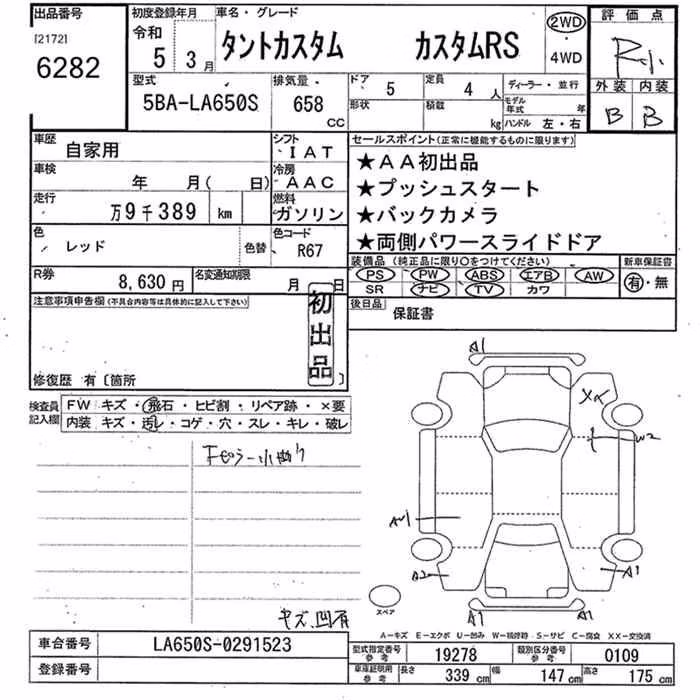 出品番号 初度登録年月 車名・グレード 2WD 評価点
[2172] 令和 4WD R小
6282 5年 3月 タントカスタム カスタムRS 外装 内装
型式 排気量 ドア 5 定員 4人 ディーラー・並行 B B
5BA-LA650S 658 CC 形状 積載 kg モデル年式 年 ハンドル 左・右
車歴 自家用 シフト IAT セールスポイント(正常に機能するものに限ります)
車検 年 月( 日) 冷房 AAC ★AA初出品
走行 万9千389 km 燃料 ガソリン ★プッシュスタート
★バックカメラ
色 レッド 色替 色コード R67 ★両側パワースライドドア
R券 8,630円 名変通知期限 月 日 装備品(純正品に限り○をつけてください) 新車保証書
PS PW ABS エアB AW 有・無
SR ナビ TV カワ
注意事項申告欄(不具合内容等は具体的に記入して下さい) 初出品 後日品 保証書
修復歴 有〔箇所 〕
検査員記入欄 FW キズ・飛石・ヒビ割・リペア跡・×要
内装 キズ・汚レ・コゲ・穴・スレ・キレ・破レ
A1
W2
A2 A1
スペア
A1 A1
キズ、凹有
A-キズ E-エクボ U-凹み W-補修跡 S-サビ C-腐食 XX-交換済
車台番号 LA650S-0291523 型式指定番号 参考 19278 類別区分番号 参考 0109
登録番号 車庫証明用 参考 長さ 339 cm 幅 147 cm 高さ 175 cm